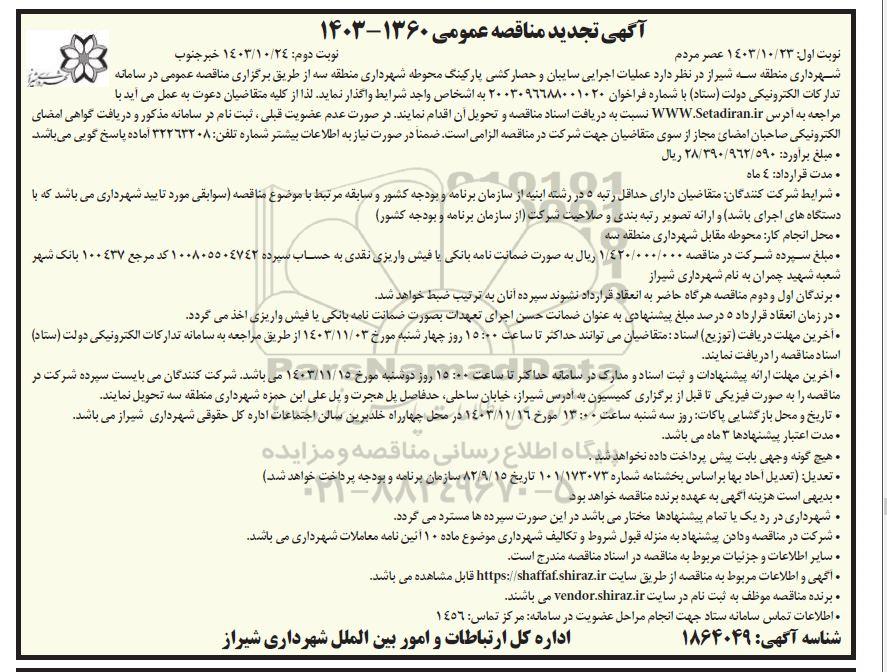 آگهی تجدید مناقصه عمومی ۱۳۶۰-۱۴۰۳
نوبت اول: ۱۴۰۳/۱۰/۲۳ عصر مردم
نوبت دوم: ۱۴۰۳/۱۰/۲۴ خبر جنوب
شهرداری منطقه سه شیراز در نظر دارد عملیات اجرایی سایبان و حصارکشی پارکینگ محوطه شهرداری منطقه سه از طریق برگزاری مناقصه عمومی در سامانه
تدارکات الکترونیکی دولت (ستاد) با شماره فراخوان ۲۰۰۳۰۹۶۶۸۸۰۰۱۰۲۰ به اشخاص واجد شرایط واگذار نماید. لذا از کلیه متقاضیان دعوت به عمل می آید با
مراجعه به آدرس WWW.Setadiran.ir نسبت به دریافت اسناد مناقصه و تحویل آن اقدام نمایند. در صورت عدم عضویت قبلی، ثبت نام در سامانه مذکور و دریافت گواهی امضای
الکترونیکی صاحبان امضائ مجاز از سوی متقاضیان جهت شرکت در مناقصه الزامی است. ضمناً در صورت نیاز به اطلاعات بیشتر شماره تلفن: ۳۲۲۶۳۲۰۸ آماده پاسخ گویی می‌باشد.
• مبلغ برآورد: ۲۸/۳۹۰/۹۶۲/۵۹۰ ریال
• مدت قرارداد: ۴ ماه
• شرایط شرکت کنندگان: متقاضیان دارای حداقل رتبه ۵ در رشته ابنیه از سازمان برنامه و بودجه کشور و سابقه مرتبط با موضوع مناقصه (سوابقی مورد تایید شهرداری می باشد که با
دستگاه های اجرای باشد) و ارائه تصویر رتبه بندی و صلاحیت شرکت (از سازمان برنامه و بودجه کشور)
• محل انجام کار: محوطه مقابل شهرداری منطقه سه
• مبلغ سپرده شرکت در مناقصه ۱/۴۲۰/۰۰۰/۰۰۰ ریال به صورت ضمانت نامه بانکی یا فیش واریزی نقدی به حساب سپرده ۱۰۰۸۰۵۵۰۴۷۴۲ کد مرجع ۱۰۰۴۳۷ بانک شهر
شعبه شهید چمران به نام شهرداری شیراز
• برندگان اول و دوم مناقصه هرگاه حاضر به انعقاد قرارداد نشوند سپرده آنان به ترتیب ضبط خواهد شد.
• در زمان انعقاد قرارداد ۵ درصد مبلغ پیشنهادی به عنوان ضمانت حسن اجرای تعهدات بصورت ضمانت نامه بانکی یا فیش واریزی اخذ می گردد.
• آخرین مهلت دریافت (توزیع) اسناد: متقاضیان می توانند حداکثر تا ساعت ۱۵:۰۰ روز چهار شنبه مورخ ۱۴۰۳/۱۱/۰۳ از طریق مراجعه به سامانه تدارکات الکترونیکی دولت (ستاد)
اسناد مناقصه را دریافت نمایند.
• آخرین مهلت ارائه پیشنهادات و ثبت اسناد و مدارک در سامانه حداکثر تا ساعت ۱۵:۰۰ روز دوشنبه مورخ ۱۴۰۳/۱۱/۱۵ می باشد. شرکت کنندگان می بایست سپرده شرکت در
مناقصه را به صورت فیزیکی تا قبل از برگزاری کمیسیون به آدرس شیراز، خیابان ساحلی، حدفاصل پل هجرت و پل علی ابن حمزه شهرداری منطقه سه تحویل نمایند.
• تاریخ و محل بازگشایی پاکات: روز سه شنبه ساعت ۱۳:۰۰ مورخ ۱۴۰۳/۱۱/۱۶ در محل چهارراه خلدبرین سالن اجتماعات اداره کل حقوقی شهرداری شیراز می باشد.
• مدت اعتبار پیشنهادها ۳ ماه می باشد.
• هیچ گونه وجهی بابت پیش پرداخت داده نخواهد شد.
• تعدیل: (تعدیل آحاد بها براساس بخشنامه شماره ۱۰۱/۱۷۳۰۷۳ تاریخ ۸۲/۹/۱۵ سازمان برنامه و بودجه پرداخت خواهد شد.)
• بدیهی است هزینه آگهی به عهده برنده مناقصه خواهد بود.
• شهرداری در رد یک یا تمام پیشنهادها مختار می باشد در این صورت سپرده ها مسترد می گردد.
• شرکت در مناقصه ودادن پیشنهاد به منزله قبول شروط و تکالیف شهرداری موضوع ماده ۱۰ آئین نامه معاملات شهرداری می باشد.
• سایر اطلاعات و جزئیات مربوط به مناقصه در اسناد مناقصه مندرج است.
• آگهی و اطلاعات مربوط به مناقصه از طریق سایت https://shaffaf.shiraz.ir قابل مشاهده می باشد.
• برنده مناقصه موظف به ثبت نام در سایت vendor.shiraz.ir می باشند.
• اطلاعات تماس سامانه ستاد جهت انجام مراحل عضویت در سامانه: مرکز تماس: ۱۴۵۶
شناسه آگهی: ۱۸۶۴۰۴۹
اداره کل ارتباطات و امور بین الملل شهرداری شیراز
ParsNamadData
پایگاه اطلاع رسانی مناقصه و مزایده
۰۲۱-۸۸۳۴۹۶۷۰-۵